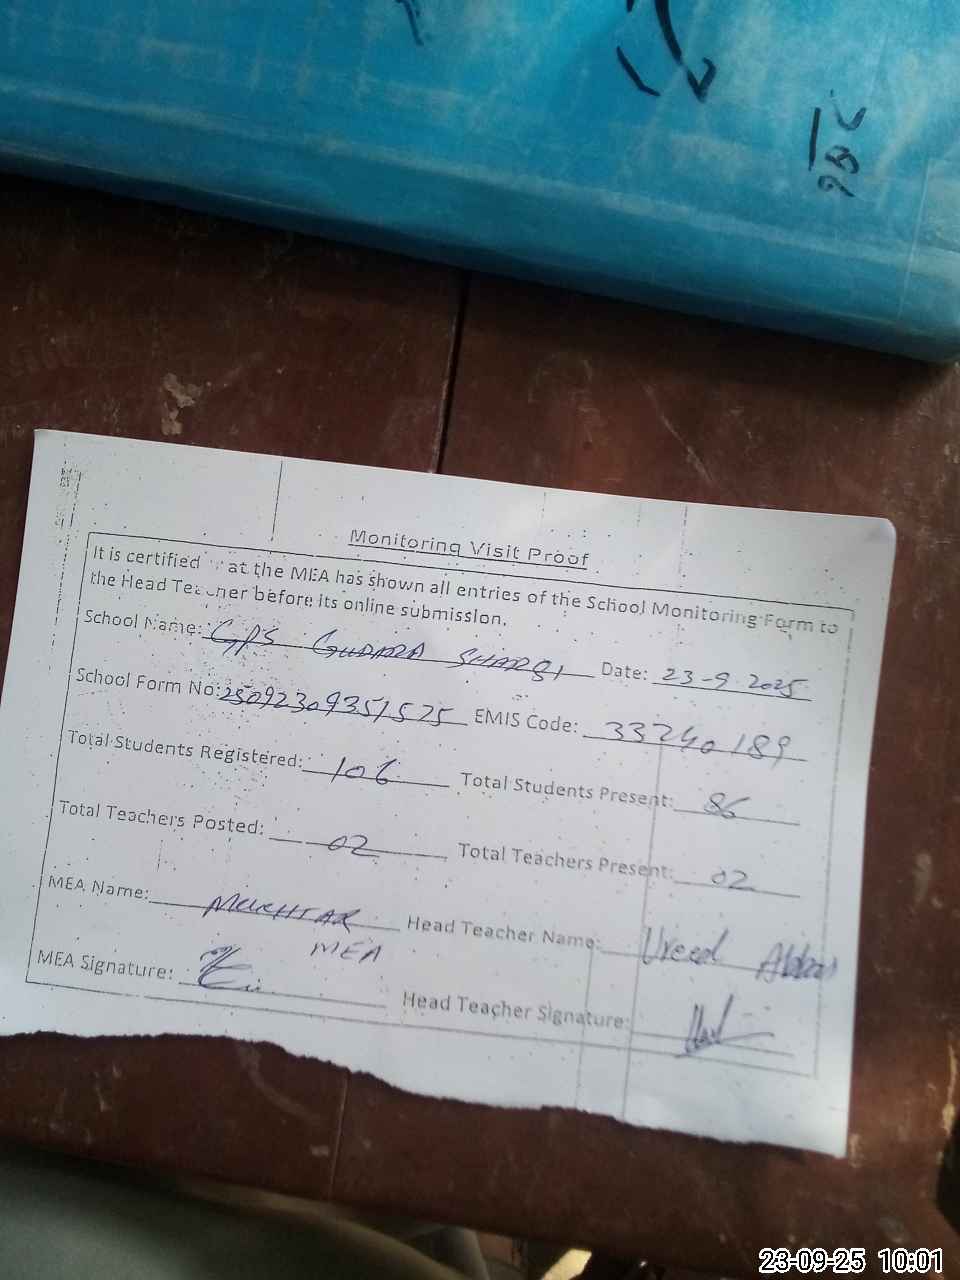 Monitoring Visit Proof
It is certified at the MEA has shown all entries of the School Monitoring Form to
the Head Teacher before its online submission.
School Name: GPS GUDARA SHARQI Date: 23-9-2025
School Form No: 25092309351575 EMIS Code: 33240189
Total Students Registered: 106 Total Students Present: 86
Total Teachers Posted: 02 Total Teachers Present: 02
MEA Name: MUKHTAR Head Teacher Name: Abbas
MEA
MEA Signature: Head Teacher Signature:
23-09-25 10:01